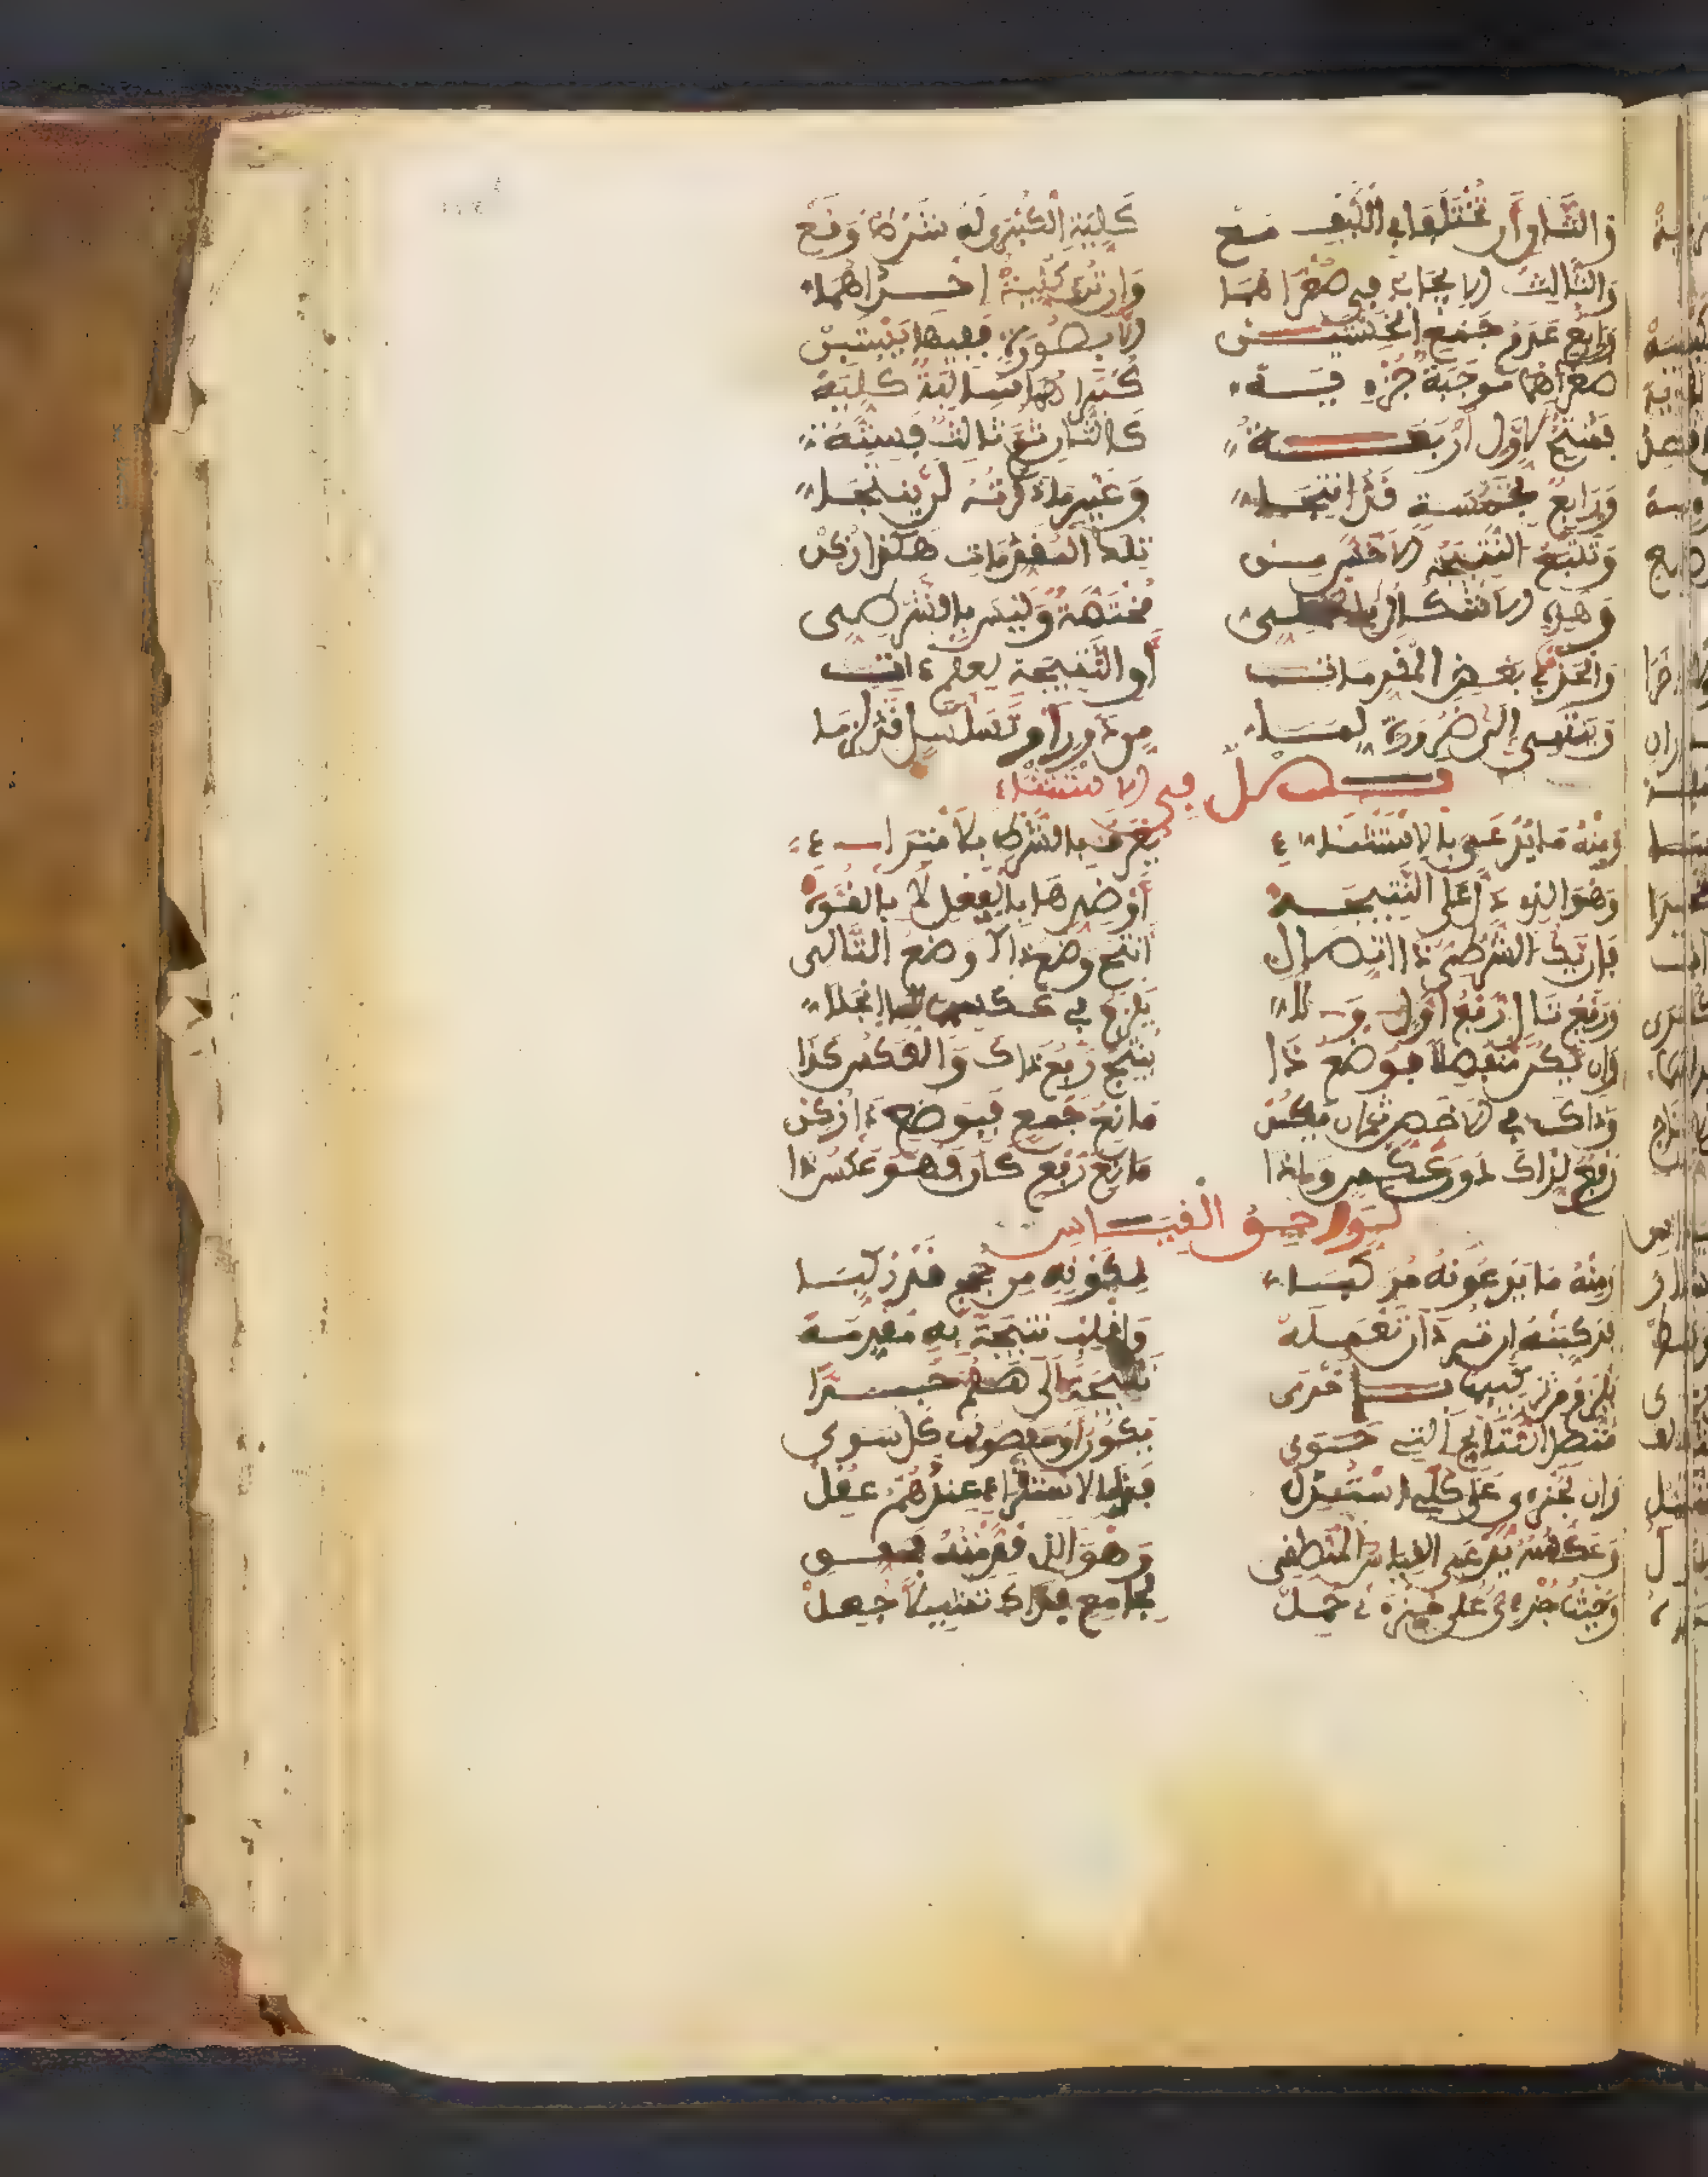 والثان أن تختلفا في الكيف مع كلية الكبرى له شرط وقع
والثالث الايجاب في صغراهما وان ترى كلية احداهما
ورابع عدم جمع الخستين الا بصورة ففيها يستبن
صغراهما موجبة جزءية كبراهما سالبة كلية
فمنتج لاول أربعة كالثان ثم ثالث فستة
ورابع بخمسة قد انتجا وغير ما ذكرته لن ينتجا
وتتبع النتيجة الاخس من تلك المقدمات هكذا زكن
وهذه الاشكال بالحملي مختصة وليس بالشرطي
والحذف في بعض المقدمات أو النتيجة لعلم ءات
وتنتهي إلى ضرورة لما من دور أو تسلسل قد لزما
فصل في الاستثناء
ومنه ما يدعى بالاستثناء يعرف بالشرط بلا امتراء
وهو الذي دل على النتيجة أو ضدها بالفعل لا بالقوة
فإن يك الشرطي ذا اتصال انتج وضع ذاك وضع التالي
ورفع تال رفع أول ولا يلزم في عكسهما لما انجلا
وإن يكن منفصلا فوضع ذا ينتج رفع ذاك والعكس كذا
وذاك في الاخص ثم ان يكن مانع جمع فبوضع ذا زكن
رفع لذاك دون عكس وإذا مانع رفع كان فهو عكس ذا
لواحق القياس
ومنه ما يدعونه مركبا لكونه من حجج قد ركبا
فركبنه إن ترد أن تعمله واقلب نتيجة به مقدمة
يلزم من تركيبها بأخرى نتيجة إلى هلم جرا
متصل النتائج التي حوى يكون أو مفصولها كل سوى
وإن بجزءي على كلي استدل فبذا الاستقراء عندهم عقل
وعكسه يدعى القياس المنطقي وهو الذي قدمته فحقق
وحيث جزءي على جزءي حمل لجامع فذاك تمثيلا جعل